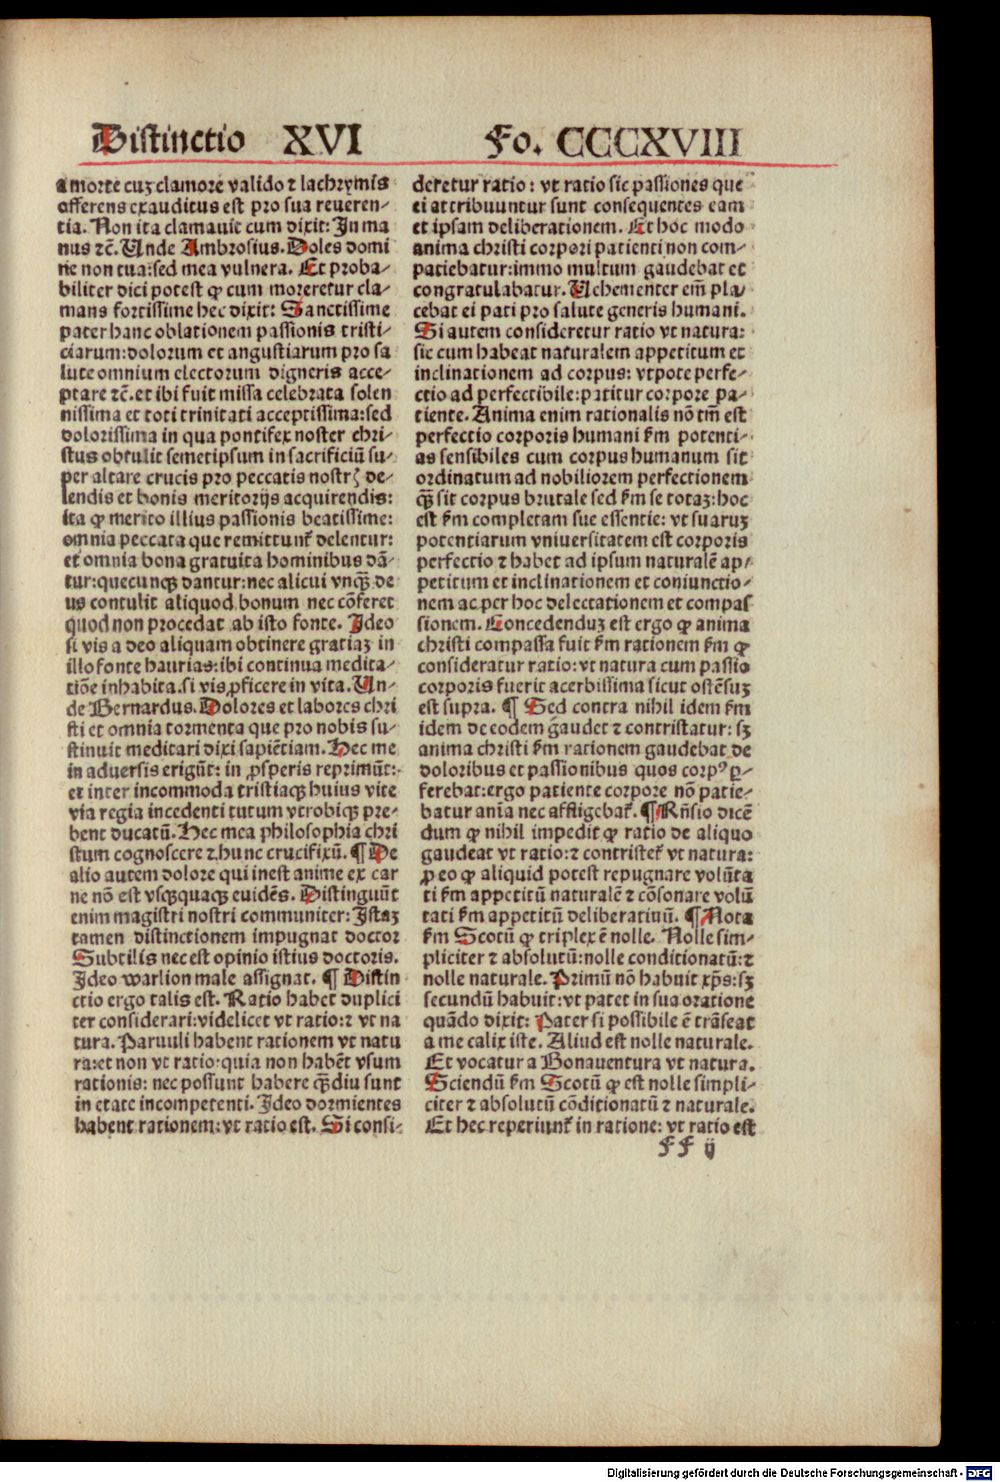 Distinctio XVI Fo. CCCXVIII
a morte cuꝫ clamore valido ⁊ lachrymis
offerens exauditus est pro sua reueren-
tia. Non ita clamauit cum dixit: In ma
nus ⁊c̄. Unde Ambrosius. Doles domi
ne non tua: sed mea vulnera. Et proba-
biliter dici potest ꝙ cum moreretur cla-
mans fortissime hec dixit: Sanctissime
pater hanc oblationem passionis tristi-
ciarum: dolorum et angustiarum pro sa
lute omnium electorum digneris acce-
ptare ⁊c̄. et ibi fuit missa celebrata solen
nissima et toti trinitati acceptissima: sed
dolorissima in qua pontifex noster chri-
stus obtulit semetipsum in sacrificiū su-
per altare crucis pro peccatis nostrꝝ de-
lendis et bonis meritorijs acquirendis:
ita ꝙ merito illius passionis beatissime:
omnia peccata que remittunt᷑ delentur:
et omnia bona gratuita hominibus dā-
tur: quecunqꝫ dantur: nec alicui vnqꝫ̄ de
us contulit aliquod bonum nec cōferet
quod non procedat ab isto fonte. Ideo
si vis a deo aliquam obtinere gratiaꝫ in
illo fonte haurias: ibi continua medita-
tiōe inhabita. si vis ꝓficere in vita. Un-
de Bernardus. Dolores et labores chri
sti et omnia tormenta que pro nobis su-
stinuit meditari dixi sapiētiam. Hec me
in aduersis erigūt: in ꝓsperis reprimūt:
et inter incommoda tristiaqꝫ huius vite
via regia incedenti tutum vtrobiqꝫ pre-
bent ducatū. Hec mea philosophia chri
stum cognoscere ⁊ hunc crucifixū. ¶ De
alio autem dolore qui inest anime ex car
ne nō est vsqꝫquaqꝫ euidēs. Distinguūt
enim magistri nostri communiter: Istaꝫ
tamen distinctionem impugnat doctor
Subtilis nec est opinio istius doctoris.
Ideo warlion male assignat. ¶ Distin
ctio ergo talis est. Ratio habet duplici
ter considerari: videlicet vt ratio: ⁊ vt na
tura. Paruuli habent rationem vt natu
ra: et non vt ratio: quia non habēt vsum
rationis: nec possunt habere qꝫ̄diu sunt
in etate incompetenti. Ideo dormientes
habent rationem: vt ratio est. Si consi-
deretur ratio: vt ratio sic passiones que
ei attribuuntur sunt consequentes eam
et ipsam deliberationem. Et hoc modo
anima christi corpori patienti non com-
patiebatur: immo multum gaudebat et
congratulabatur. Uehementer em̄ pla-
cebat ei pati pro salute generis humani.
Si autem consideretur ratio vt natura:
sic cum habeat naturalem appetitum et
inclinationem ad corpus: vtpote perfe-
ctio ad perfectibile: patitur corpore pa-
tiente. Anima enim rationalis nō tm̄ est
perfectio corporis humani ẜm potenti-
as sensibiles cum corpus humanum sit
ordinatum ad nobiliorem perfectionem
qꝫ̄ sit corpus brutale sed ẜm se totaꝫ: hoc
est ẜm completam sue essentie: vt suaruꝫ
potentiarum vniuersitatem est corporis
perfectio ⁊ habet ad ipsum naturalē ap-
petitum et inclinationem et coniunctio-
nem ac per hoc delectationem et compas
sionem. Concedenduꝫ est ergo ꝙ anima
christi compassa fuit ẜm rationem ẜm ꝙ
consideratur ratio: vt natura cum passio
corporis fuerit acerbissima sicut ostēsuꝫ
est supra. ¶ Sed contra nihil idem ẜm
idem de eodem gaudet ⁊ contristatur: sꝫ
anima christi ẜm rationem gaudebat de
doloribus et passionibus quos corpꝰ ꝑ-
ferebat: ergo patiente corpore nō patie-
batur anīa nec affligebat᷑. ¶ Rñsio dicē
dum ꝙ nihil impedit ꝙ ratio de aliquo
gaudeat vt ratio: ⁊ contristet᷑ vt natura:
ꝓ eo ꝙ aliquid potest repugnare volūta
ti ẜm appetitū naturalē ⁊ cōsonare volū
tati ẜm appetitū deliberatiuū. ¶ Nota
ẜm Scotū ꝙ triplex ē nolle. Nolle sim-
pliciter ⁊ absolutū: nolle conditionatū: ⁊
nolle naturale. Primū nō habuit xp̄s: sꝫ
secundū habuit: vt patet in sua oratione
quādo dixit: Pater si possibile ē trāseat
a me calix iste. Aliud est nolle naturale.
Et vocatur a Bonauentura vt natura.
Sciendū ẜm Scotū ꝙ est nolle simpli-
citer ⁊ absolutū cōditionatū ⁊ naturale.
Et hec reperiunt᷑ in ratione: vt ratio est
FF ij
Digitalisierung gefördert durch die Deutsche Forschungsgemeinschaft - DFG